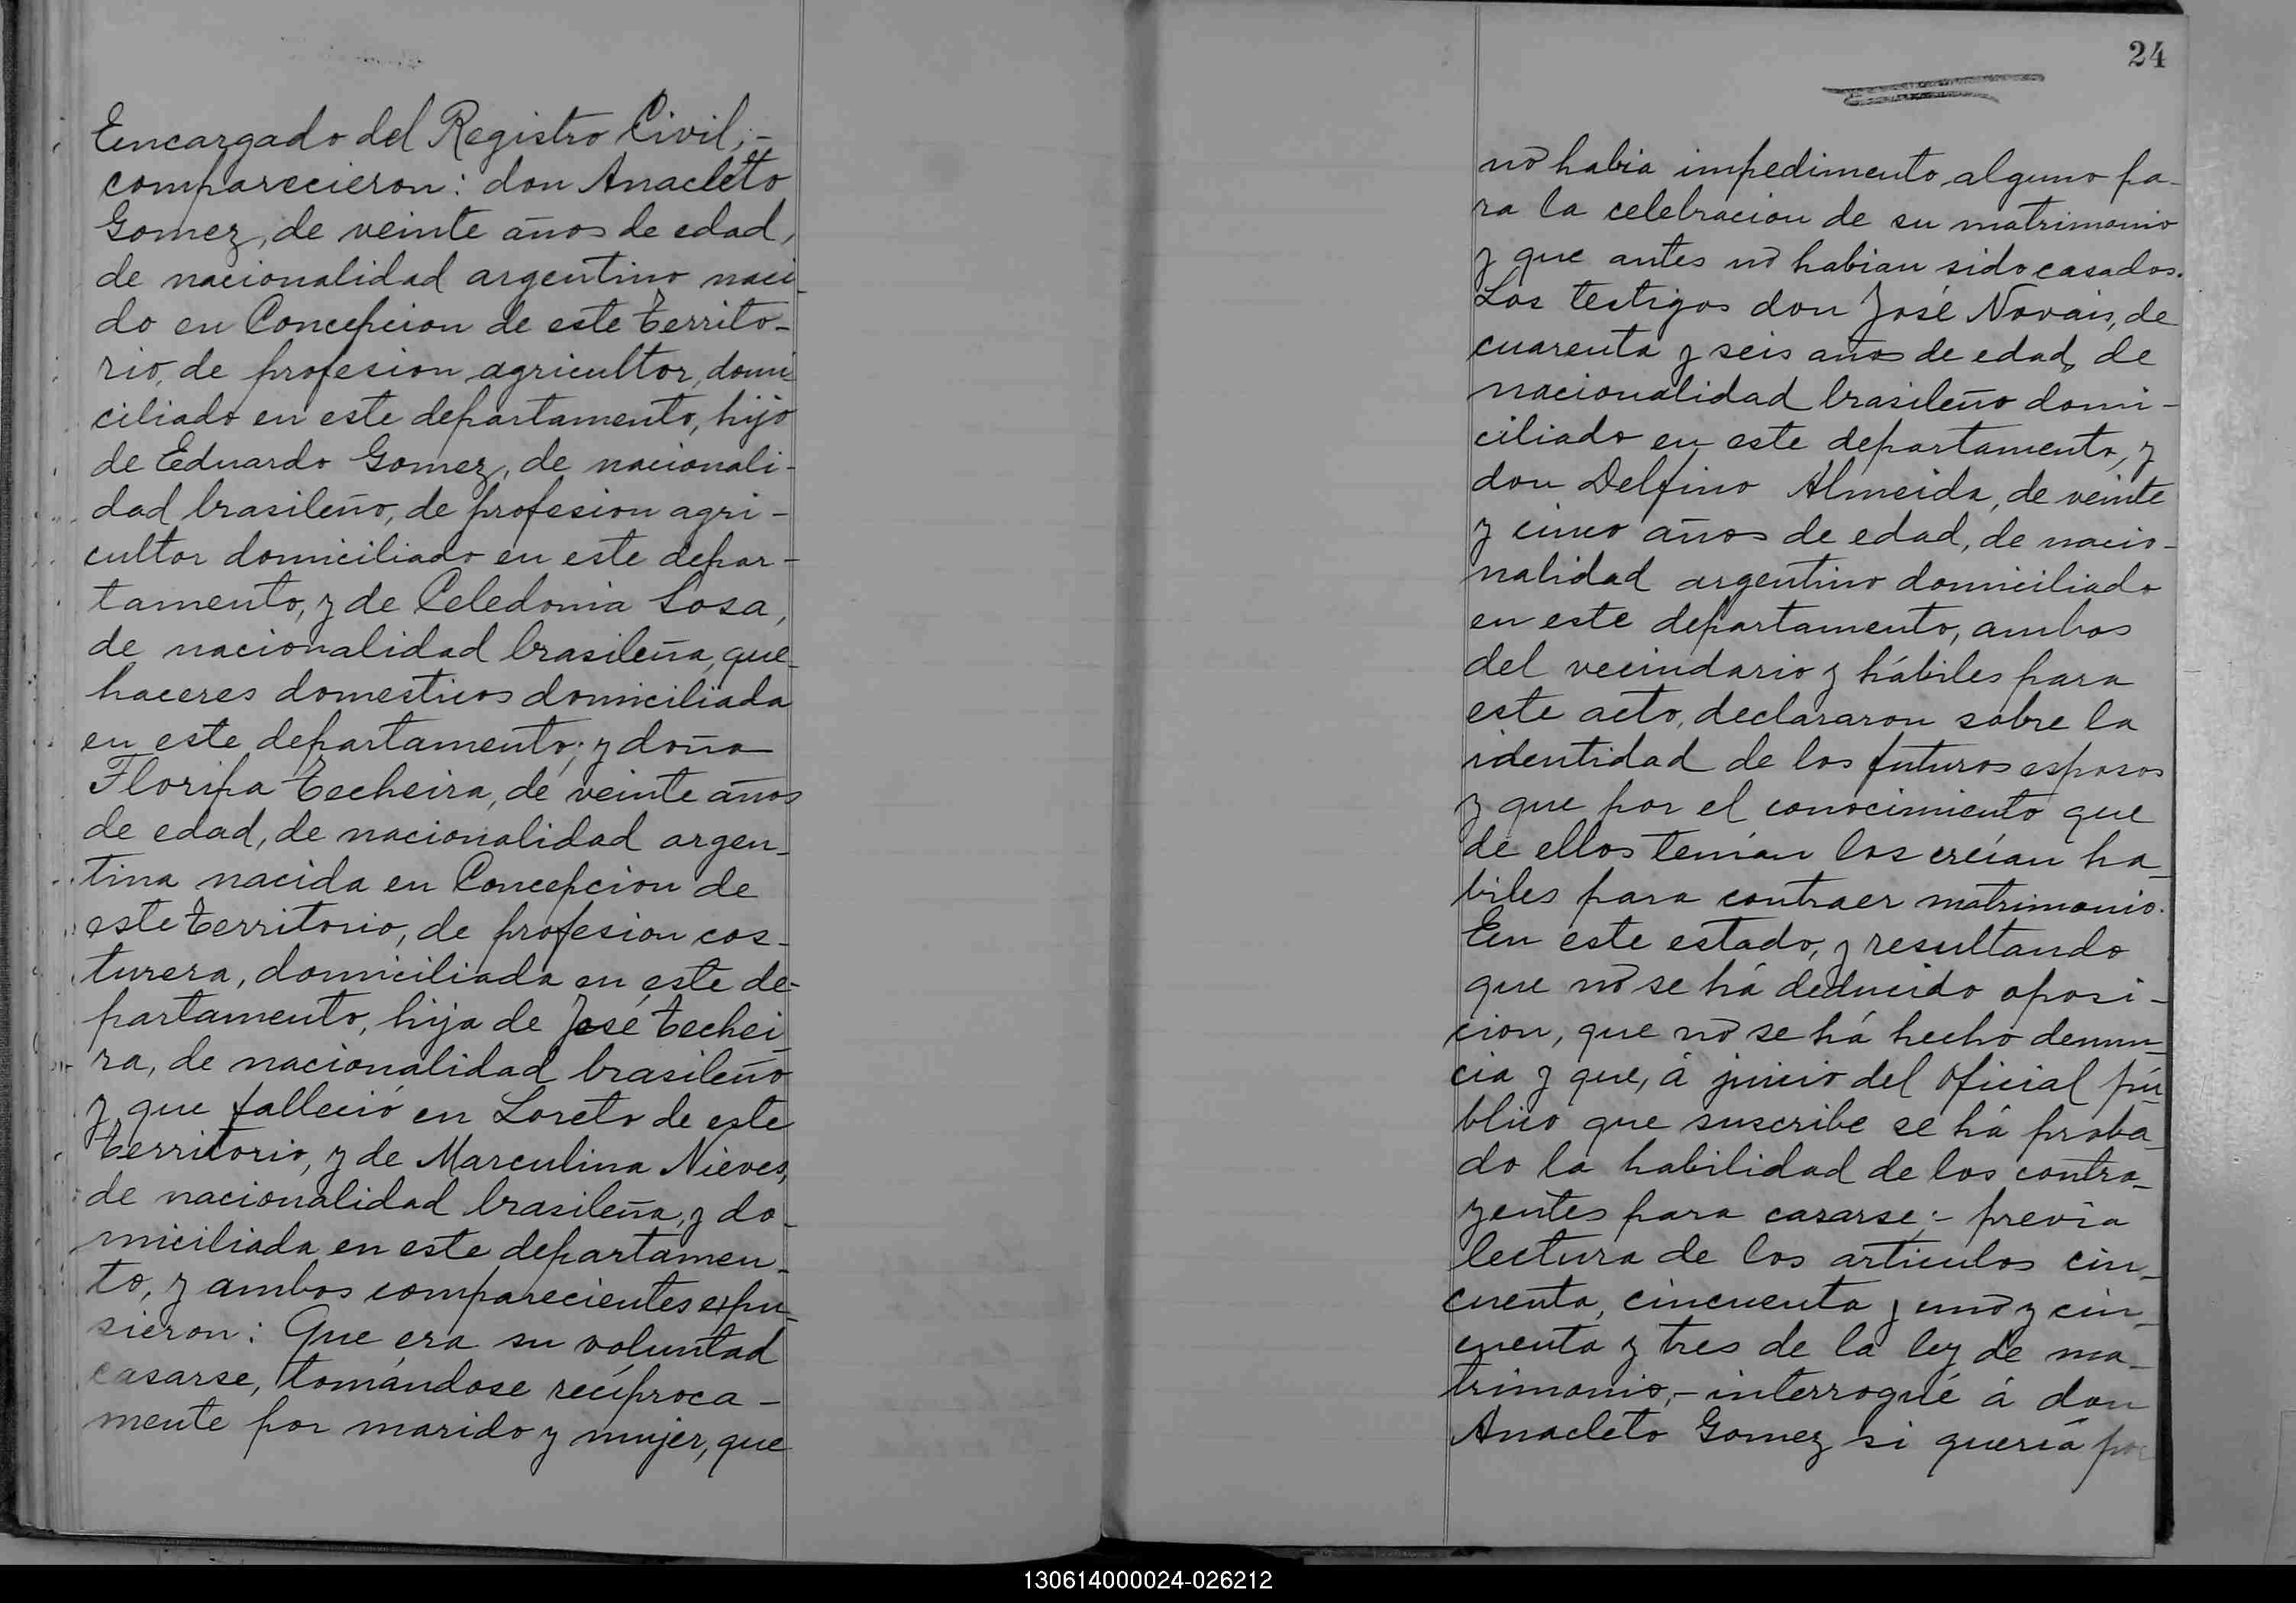 Encargado del Registro Civil;-
comparecieron: don Anacleto
Gomez, de veinte años de edad,
de nacionalidad argentino naci-
do en Concepcion de este territo-
rio, de profesion agricultor, domi
ciliado en este departamento, hijo
de Eduardo Gomez, de nacionali-
dad brasileño, de profesion agri-
cultor domiciliado en este depar-
tamento, y de Celedonia Sosa,
de nacionalidad brasileña, que-
haceres domesticos domiciliada
en este departamento; y doña
Floripa Techeira, de veinte años
de edad, de nacionalidad argen-
tina nacida en Concepcion de
este territorio, de profesion cos-
turera, domiciliada en este de-
partamento, hija de José Techei-
ra, de nacionalidad brasileño
y que falleció en Loreto de este
territorio, y de Marculina Nieves,
de nacionalidad brasileña, y do-
miciliada en este departamen-
to, y ambos comparecientes expu-
sieron: Que era su voluntad
casarse, tomándose recíproca-
mente por marido y mujer, que
24
nó habia impedimento alguno pa-
ra la celebracion de su matrimonio
y que antes nó habian sido casados.
Los testigos don José Novais, de
cuarenta y seis años de edad, de
nacionalidad brasileño domi-
ciliado en este departamento, y
don Delfino Almeida, de veinte
y cinco años de edad, de nacio-
nalidad argentino domiciliado
en este departamento, ambos
del vecindario y hábiles para
este acto, declararon sobre la
identidad de los futuros esposos
y que por el conocimiento que
de ellos tenían los creían ha-
biles para contraer matrimonio.
En este estado, y resultando
que nó se há deducido oposi-
cion, que nó se há hecho denun-
cia y que, á juicio del oficial pú-
blico que suscribe se há proba-
do la habilidad de los contra-
yentes para casarse;- previa
lectura de los articulos cin-
cuenta, cincuenta y uno y cin-
cuenta y tres de la ley de ma-
trimonio,- interrogué á don
Anacleto Gomez si quería por
130614000024-026212